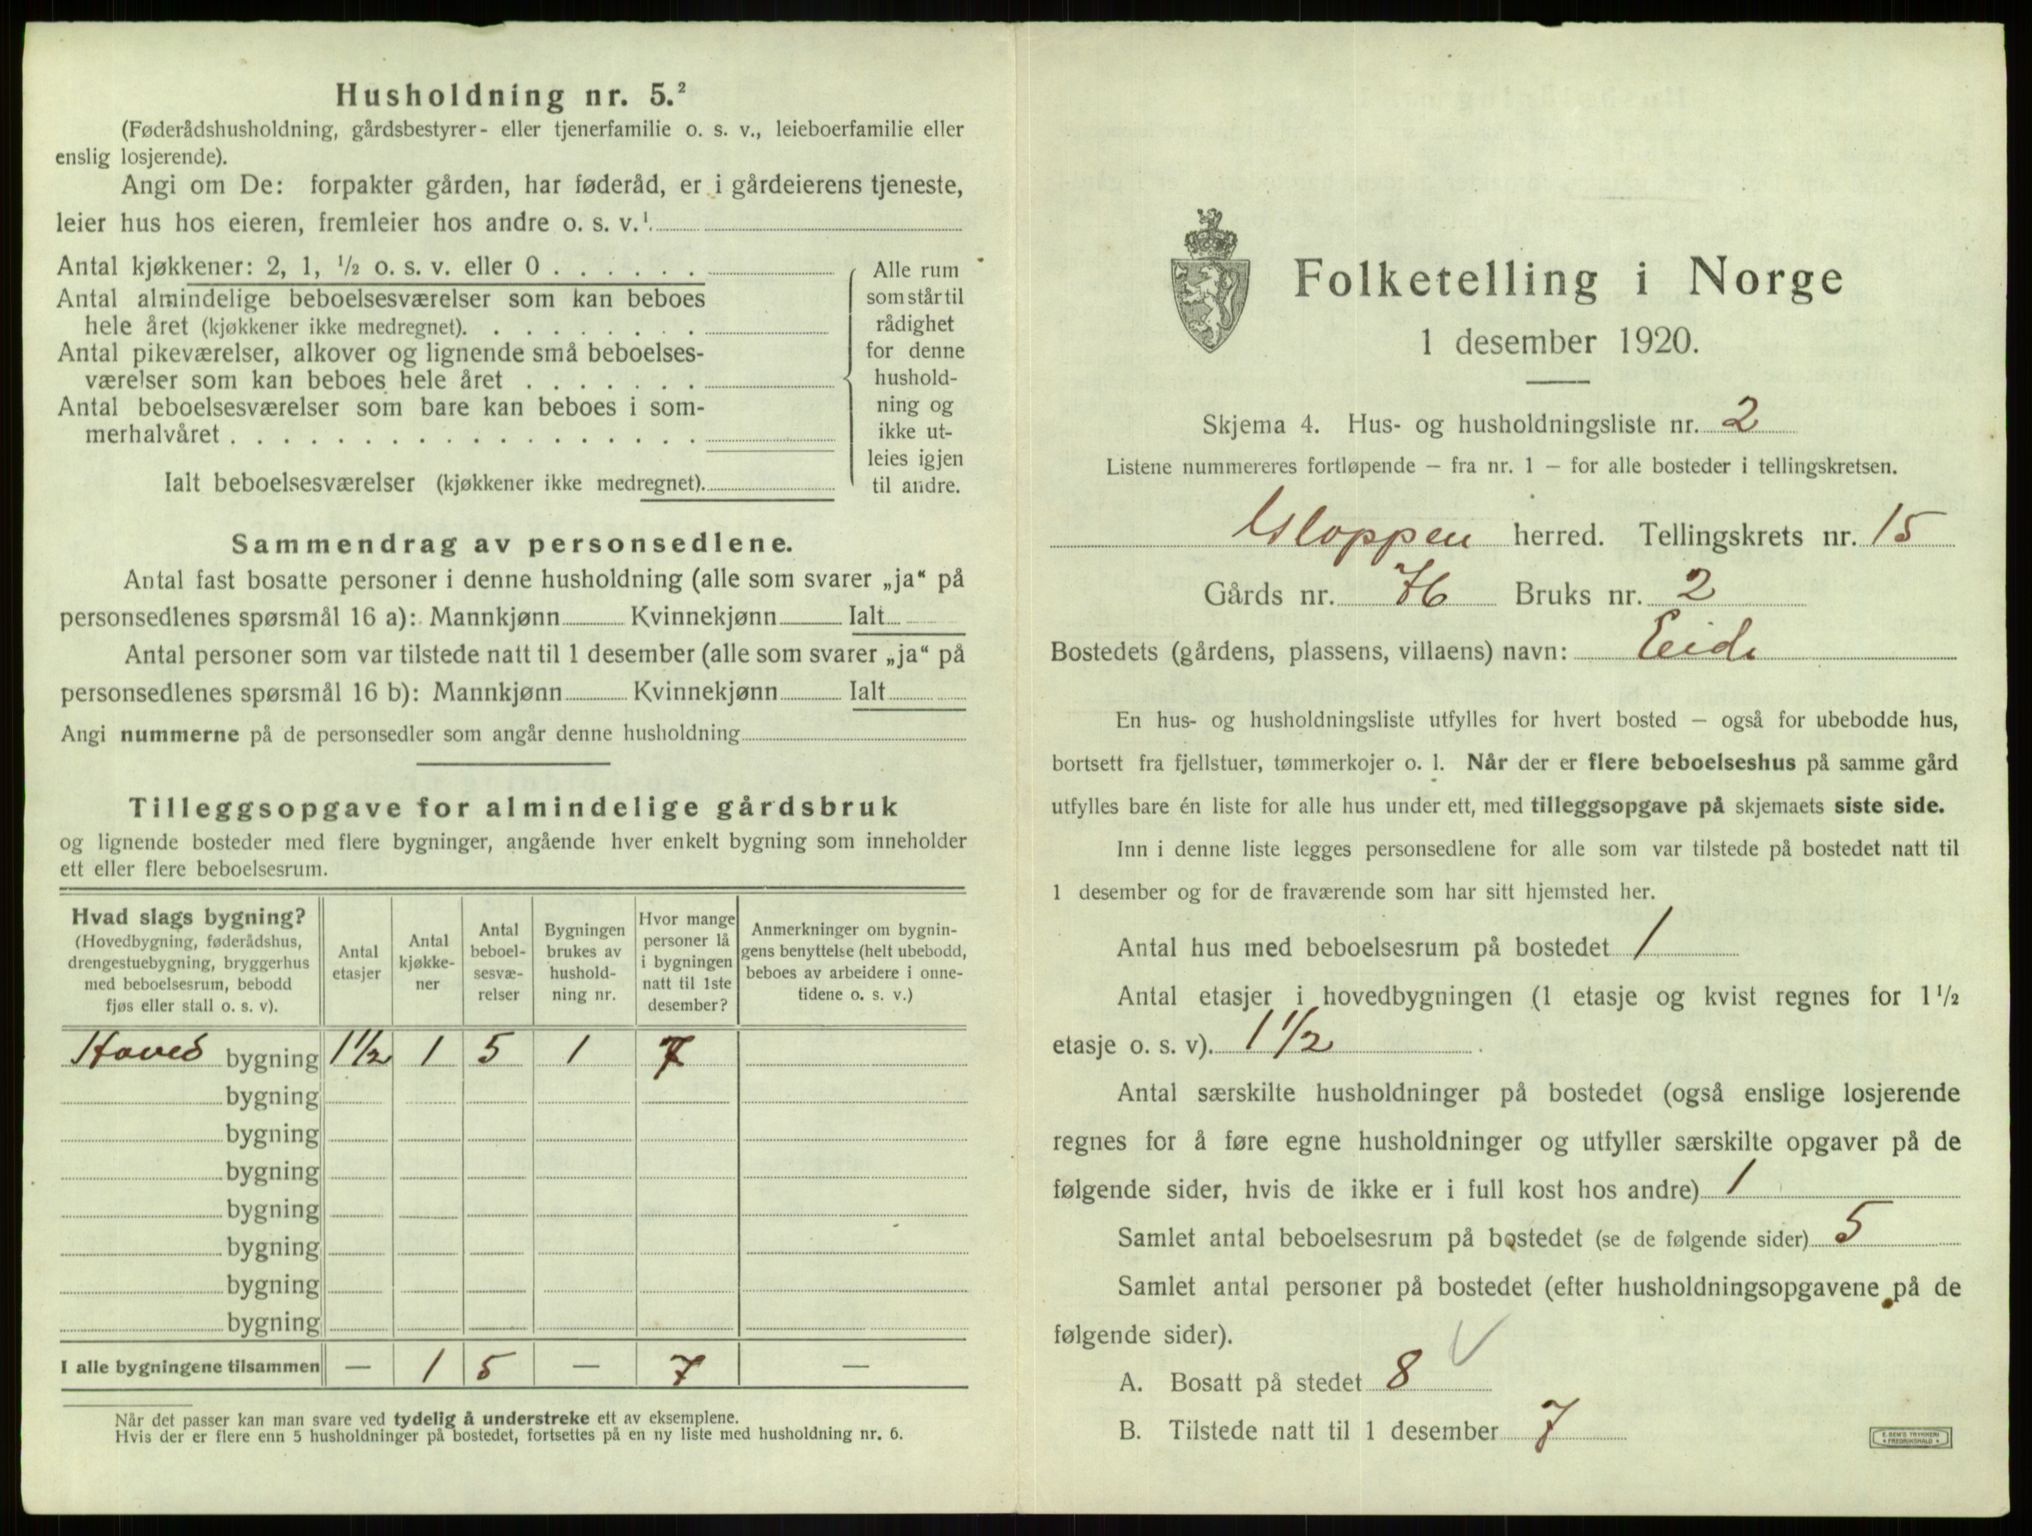 Husholdning nr. 5.²
(Føderådshusholdning, gårdsbestyrer- eller tjenerfamilie o. s. v., leieboerfamilie eller
enslig losjerende).
Angi om De: forpakter gården, har føderåd, er i gårdeierens tjeneste,
leier hus hos eieren, fremleier hos andre o. s. v.¹
Antal kjøkkener: 2, 1, ½ o. s. v. eller 0
Antal almindelige beboelsesværelser som kan beboes
hele året (kjøkkener ikke medregnet).
Antal pikeværelser, alkover og lignende små beboelses-
værelser som kan beboes hele året
Antal beboelsesværelser som bare kan beboes i som-
merhalvåret
Ialt beboelsesværelser (kjøkkener ikke medregnet)
Alle rum
som står til
rådighet
for denne
hushold-
ning og
ikke ut-
leies igjen
til andre.
Sammendrag av personsedlene.
Antal fast bosatte personer i denne husholdning (alle som svarer „ja“ på
personsedlenes spørsmål 16 a): Mannkjønn Kvinnekjønn Ialt
Antal personer som var tilstede natt til 1 desember (alle som svarer „ja“ på
personsedlenes spørsmål 16 b): Mannkjønn Kvinnekjønn Ialt
Angi nummerne på de personsedler som angår denne husholdning
Tilleggsopgave for almindelige gårdsbruk
og lignende bosteder med flere bygninger, angående hver enkelt bygning som inneholder
ett eller flere beboelsesrum.
Hvad slags bygning?
(Hovedbygning, føderådshus,
drengestuebygning, bryggerhus
med beboelsesrum, bebodd
fjøs eller stall o. s. v).
Antal
etasjer
Antal
kjøkke-
ner
Antal
beboel-
sesvæ-
relser
Bygningen
brukes av
hushold-
ning nr.
Hvor mange
personer lå
i bygningen
natt til 1ste
desember?
Anmerkninger om bygnin-
gens benyttelse (helt ubebodd,
beboes av arbeidere i onne-
tidene o. s. v.)
Hoved bygning 1½ 1 5 1 7
bygning
bygning
bygning
bygning
bygning
bygning
bygning
I alle bygningene tilsammen — 1 5 — 7 —
Når det passer kan man svare ved tydelig å understreke ett av eksemplene.
Hvis der er flere enn 5 husholdninger på bostedet, fortsettes på en ny liste med husholdning nr. 6.
Folketelling i Norge
1 desember 1920.
Skjema 4. Hus- og husholdningsliste nr. 2
Listene nummereres fortløpende – fra nr. 1 – for alle bosteder i tellingskretsen.
Gloppen herred. Tellingskrets nr. 15
Gårds nr. 76 Bruks nr. 2
Bostedets (gårdens, plassens, villaens) navn: Eide
En hus- og husholdningsliste utfylles for hvert bosted – også for ubebodde hus,
bortsett fra fjellstuer, tømmerkojer o. l. Når der er flere beboelseshus på samme gård
utfylles bare én liste for alle hus under ett, med tilleggsopgave på skjemaets siste side.
Inn i denne liste legges personsedlene for alle som var tilstede på bostedet natt til
1 desember og for de fraværende som har sitt hjemsted her.
Antal hus med beboelsesrum på bostedet 1
Antal etasjer i hovedbygningen (1 etasje og kvist regnes for 1½
etasje o. s. v). 1½
Antal særskilte husholdninger på bostedet (også enslige losjerende
regnes for å føre egne husholdninger og utfyller særskilte opgaver på de
følgende sider, hvis de ikke er i full kost hos andre) 1
Samlet antal beboelsesrum på bostedet (se de følgende sider) 5
Samlet antal personer på bostedet (efter husholdningsopgavene på de
følgende sider).
A. Bosatt på stedet 8
B. Tilstede natt til 1 desember 7
E. SEM'S TRYKKERI
FREDRIKSHALD